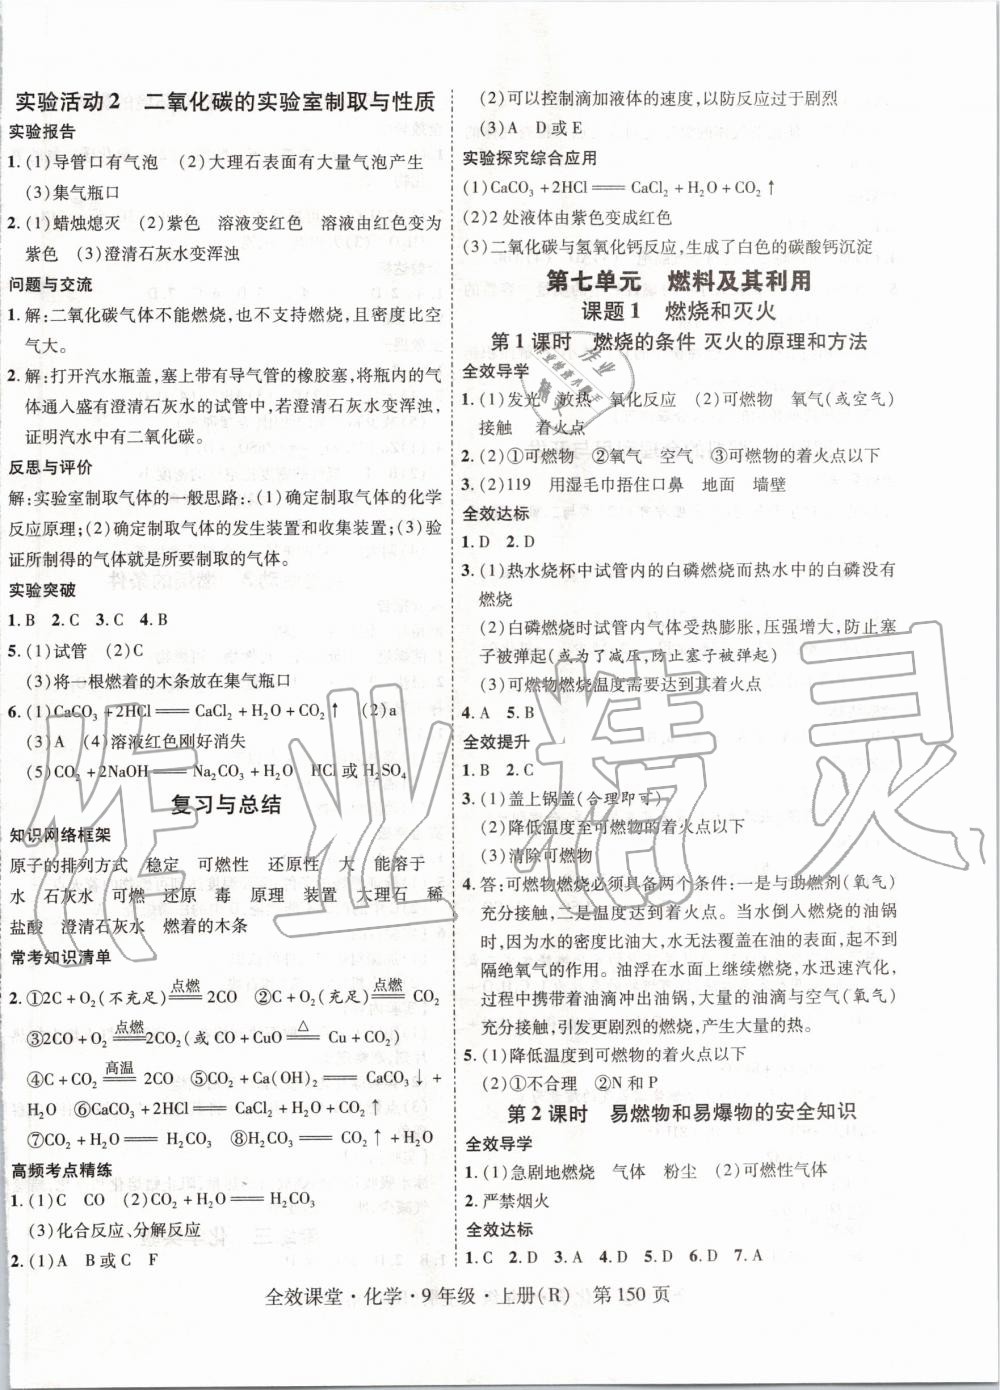 实验活动2 二氧化碳的实验室制取与性质
实验报告
1.(1)导管口有气泡 (2)大理石表面有大量气泡产生
(3)集气瓶口
2.(1)蜡烛熄灭 (2)紫色 溶液变红色 溶液由红色变为
紫色 (3)澄清石灰水变浑浊
问题与交流
1.解:二氧化碳气体不能燃烧,也不支持燃烧,且密度比空
气大。
2.解:打开汽水瓶盖,塞上带有导气管的橡胶塞,将瓶内的气
体通入盛有澄清石灰水的试管中,若澄清石灰水变浑浊,
证明汽水中有二氧化碳。
反思与评价
解:实验室制取气体的一般思路:.(1)确定制取气体的化学
反应原理;(2)确定制取气体的发生装置和收集装置;(3)验
证所制得的气体就是所要制取的气体。
实验突破
1.B 2.C 3.C 4.B
5.(1)试管 (2)C
(3)将一根燃着的木条放在集气瓶口
6.(1)CaCO₃+2HCl══CaCl₂+H₂O+CO₂↑ (2)a
(3)A (4)溶液红色刚好消失
(5)CO₂+2NaOH══Na₂CO₃+H₂O HCl或H₂SO₄
复习与总结
知识网络框架
原子的排列方式 稳定 可燃性 还原性 大 能溶于
水 石灰水 可燃 还原 毒 原理 装置 大理石 稀
盐酸 澄清石灰水 燃着的木条
常考知识清单
2.①2C+O₂(不充足)点燃══2CO ②C+O₂(充足)点燃══CO₂
③2CO+O₂点燃══2CO₂(或CO+CuO△══Cu+CO₂)
④C+CO₂高温══2CO ⑤CO₂+Ca(OH)₂══CaCO₃↓+
H₂O ⑥CaCO₃+2HCl══CaCl₂+H₂O+CO₂↑
⑦CO₂+H₂O══H₂CO₃ ⑧H₂CO₃══CO₂↑+H₂O
高频考点精练
1.(1)C CO (2)CO₂+H₂O══H₂CO₃
(3)化合反应、分解反应
2.(1)A B或C F
(2)可以控制滴加液体的速度,以防反应过于剧烈
(3)A D或E
实验探究综合应用
(1)CaCO₃+2HCl══CaCl₂+H₂O+CO₂↑
(2)2处液体由紫色变成红色
(3)二氧化碳与氢氧化钙反应,生成了白色的碳酸钙沉淀
第七单元 燃料及其利用
课题1 燃烧和灭火
第1课时 燃烧的条件 灭火的原理和方法
全效导学
1.(1)发光 放热 氧化反应 (2)可燃物 氧气(或空气)
接触 着火点
2.(2)①可燃物 ②氧气 空气 ③可燃物的着火点以下
3.(2)119 用湿毛巾捂住口鼻 地面 墙壁
全效达标
1.D 2.D
3.(1)热水烧杯中试管内的白磷燃烧而热水中的白磷没有
燃烧
(2)白磷燃烧时试管内气体受热膨胀,压强增大,防止塞
子被弹起(或为了防止塞子被弹起)
(3)可燃物燃烧温度需要达到其着火点
4.A 5.B
全效提升
1.B 2.C
3.(1)盖上锅盖(合理即可)
(2)降低温度至可燃物的着火点以下
(3)清除可燃物
4.答:可燃物燃烧必须具备两个条件:一是与助燃剂(氧气)
充分接触,二是温度达到着火点。当水倒入燃烧的油锅
时,因为水的密度比油大,水无法覆盖在油的表面,起不到
隔绝氧气的作用。油浮在水面上继续燃烧,水迅速汽化,
过程中携带着油滴冲出油锅,大量的油滴与空气(氧气)
充分接触,引发更剧烈的燃烧,产生大量的热。
5.(1)降低温度到可燃物的着火点以下
(2)①不合理 ②N和P
第2课时 易燃物和易爆物的安全知识
全效导学
1.(1)急剧地燃烧 气体 粉尘 (2)可燃性气体
2.严禁烟火
全效达标
1.C 2.D 3.A 4.D 5.D 6.D 7.A
全效课堂·化学·9年级·上册(R) 第150页
作业精灵